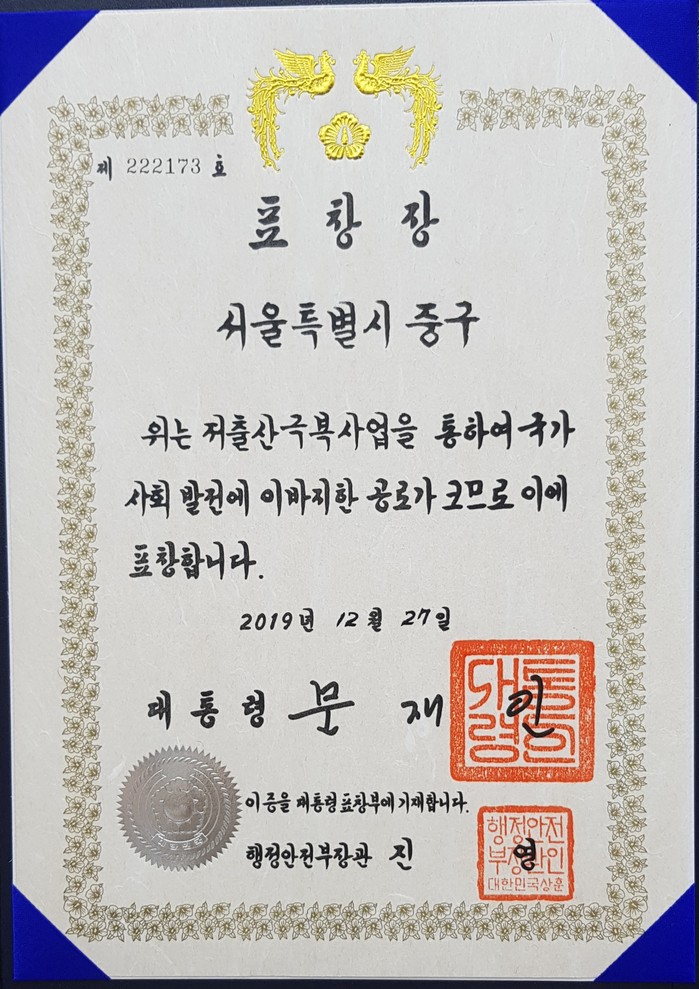 제 222173 호
표창장
서울특별시 중구
위는 저출산극복사업을 통하여 국가
사회 발전에 이바지한 공로가 크므로 이에
표창합니다.
2019년 12월 27일
대통령 문재인
대통
령인
이 증을 대통령표창부에 기재합니다.
행정안전부장관 진영
행정안전
부장관인
대한민국상훈